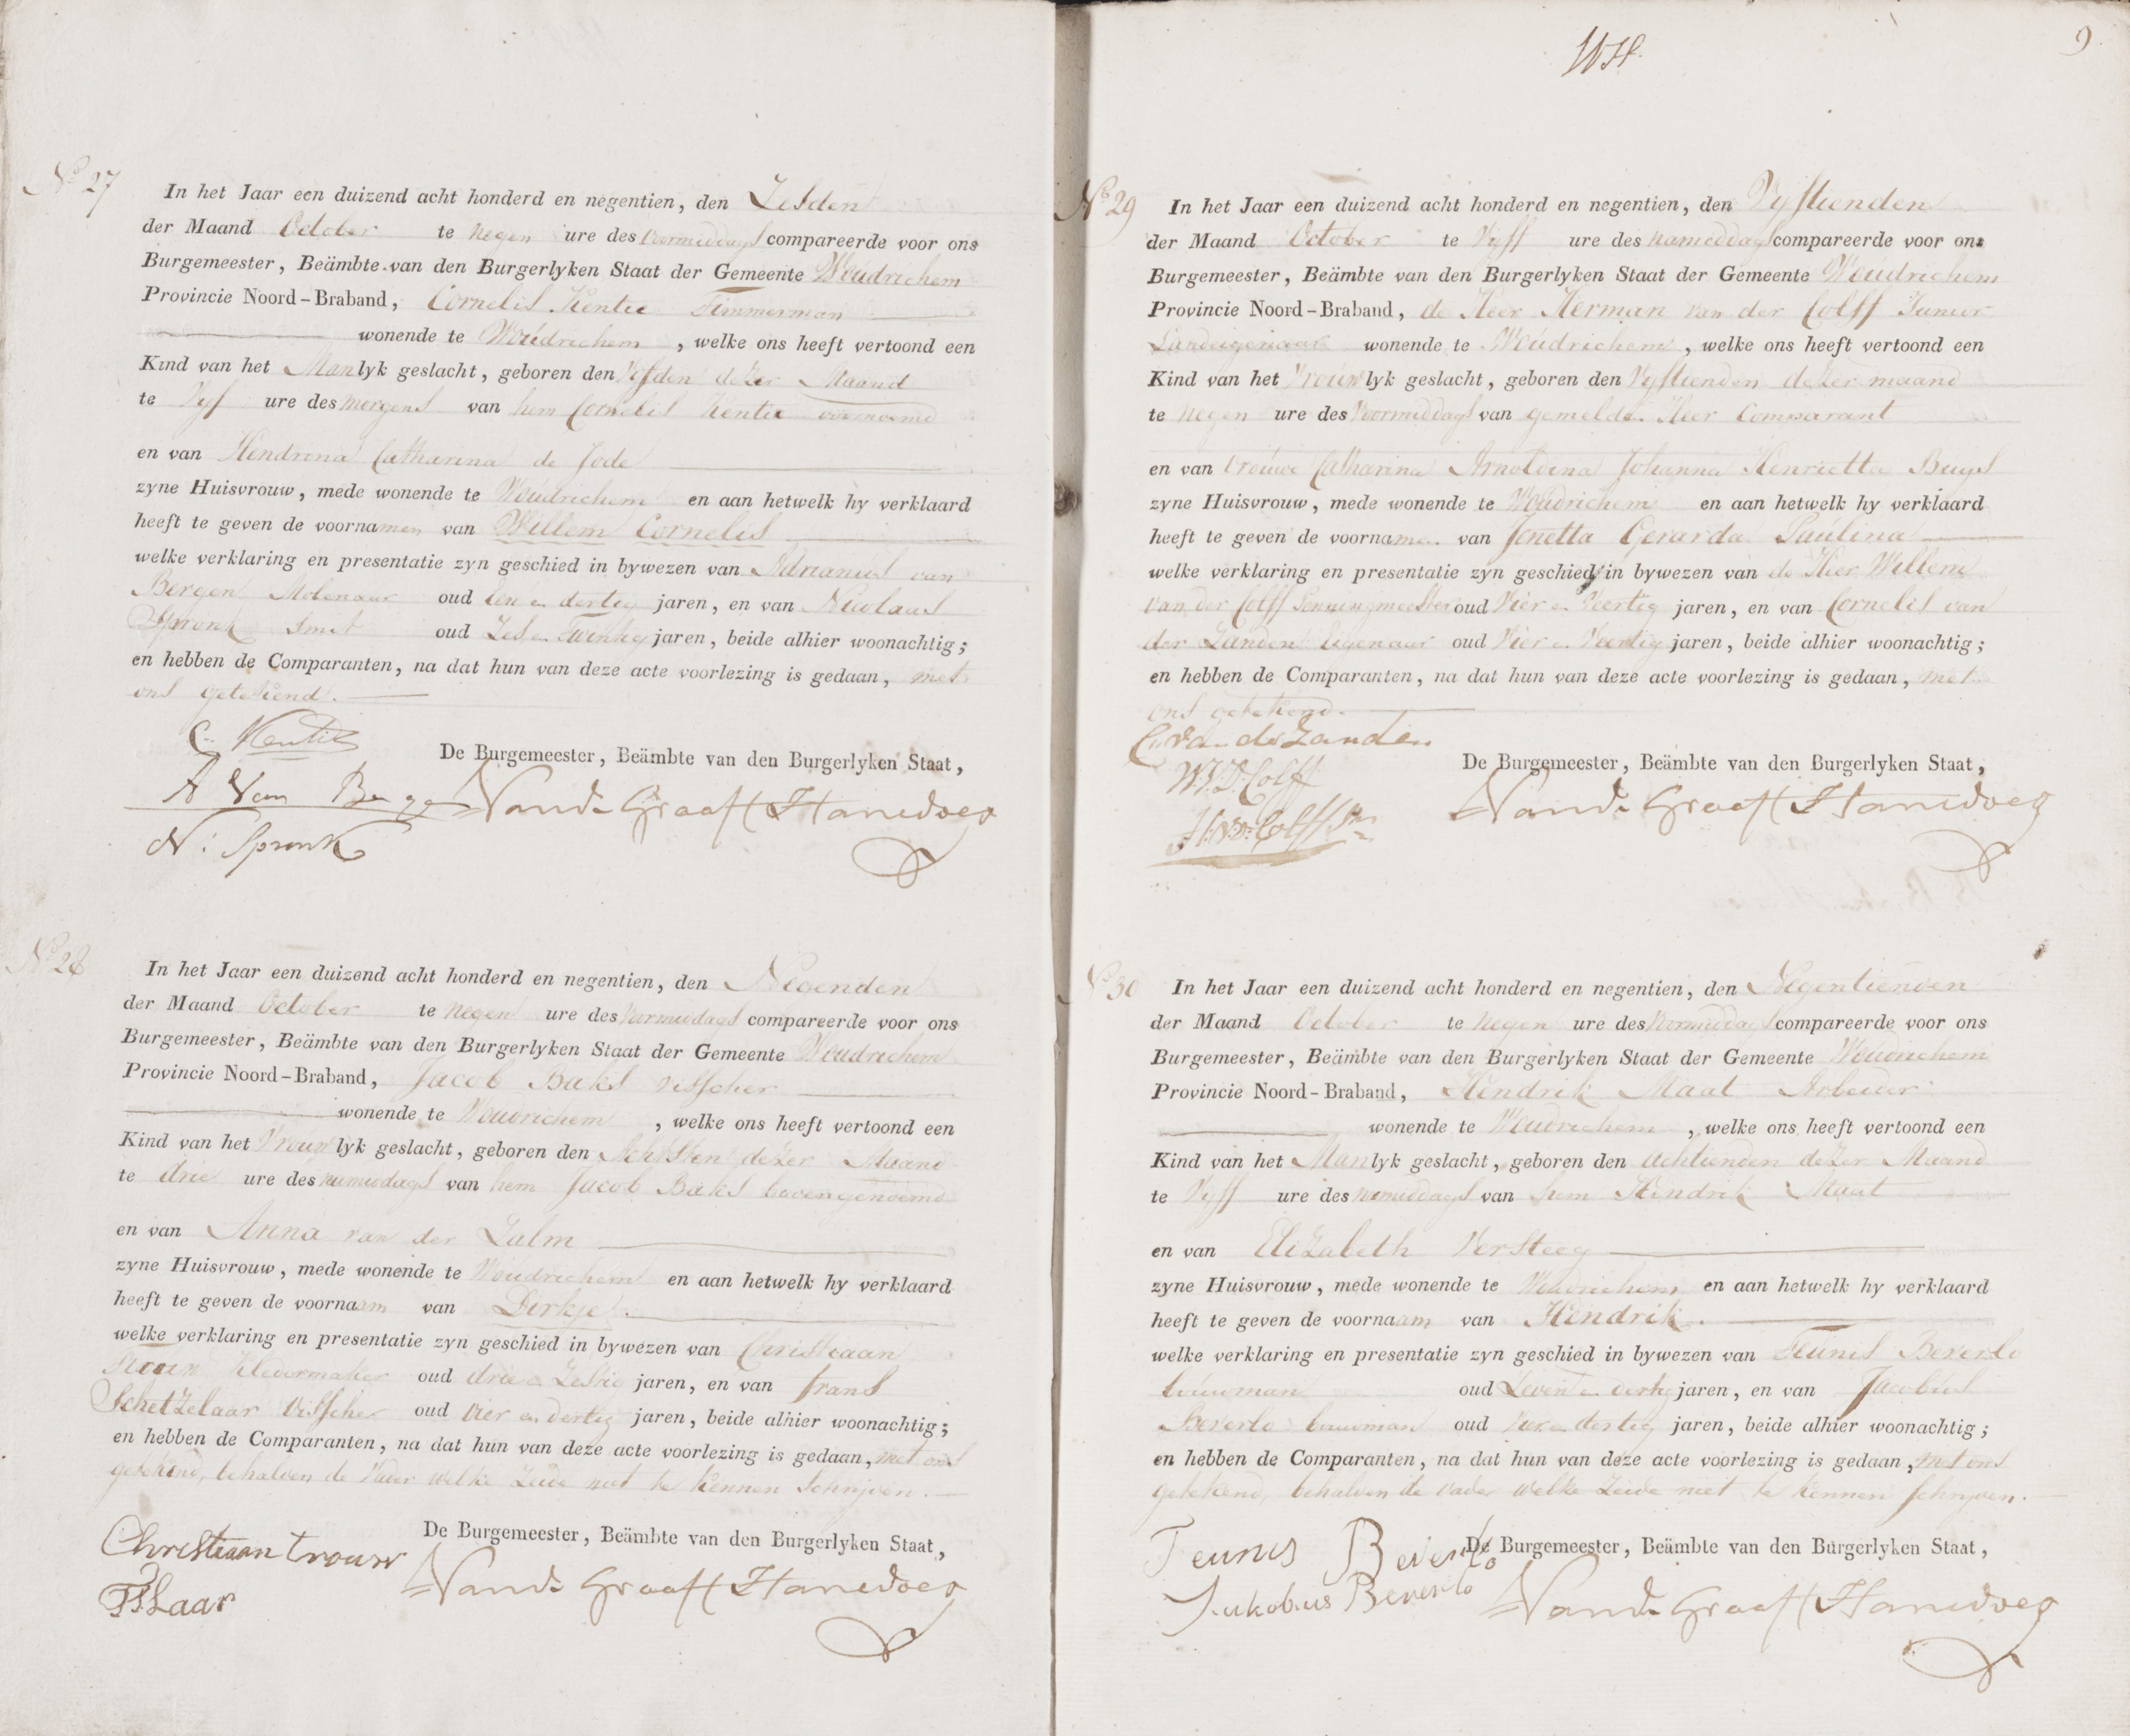 No 27
In het Jaar een duizend acht honderd en negentien, den Zesden
der Maand October te Negen ure des voormiddags compareerde voor ons
Burgemeester, Beämbte van den Burgerlyken Staat der Gemeente Woudrichem
Provincie Noord-Braband, Cornelis Kentie Timmerman
wonende te Woudrichem, welke ons heeft vertoond een
Kind van het Manlyk geslacht, geboren den Vyfden dezer Maand
te Vyf ure des morgens van hem Cornelis Kentie voornoemd
en van Hendrina Catharina de Jode
zyne Huisvrouw, mede wonende te Woudrichem en aan hetwelk hy verklaard
heeft te geven de voornamen van Willem Cornelis
welke verklaring en presentatie zyn geschied in bywezen van Adrianus van
Bergen Molenaar oud een en dertig jaren, en van Nicolaas
Spronk Smit oud Zes en Twintig jaren, beide alhier woonachtig;
en hebben de Comparanten, na dat hun van deze acte voorlezing is gedaan, met
ons getekend.
C. Kentie
De Burgemeester, Beämbte van den Burgerlyken Staat,
A Van Berge
N: Spronk
No 28
In het Jaar een duizend acht honderd en negentien, den Negenden
der Maand October te Negen ure des Voormiddags compareerde voor ons
Burgemeester, Beämbte van den Burgerlyken Staat der Gemeente Woudrichem
Provincie Noord-Braband, Jacob Baks Visscher
wonende te Woudrichem, welke ons heeft vertoond een
Kind van het Vrouwlyk geslacht, geboren den Achtsten dezer Maand
te drie ure des namiddags van hem Jacob Baks bovengenoemd
en van Anna van der Zalm
zyne Huisvrouw, mede wonende te Woudrichem en aan hetwelk hy verklaard
heeft te geven de voornaam van Dirkje.
welke verklaring en presentatie zyn geschied in bywezen van Christiaan
Trouw Kledermaker oud drie en Zestig jaren, en van Frans
Schetzelaar Visscher oud vier en dertig jaren, beide alhier woonachtig;
en hebben de Comparanten, na dat hun van deze acte voorlezing is gedaan, met ons
getekend, behalven de Vader welke Zeide niet te kennen Schrijven.
De Burgemeester, Beämbte van den Burgerlyken Staat,
Christiaan trouw
9
No 29
In het Jaar een duizend acht honderd en negentien, den Vyftienden
der Maand October te Vyff ure des namiddags compareerde voor ons
Burgemeester, Beämbte van den Burgerlyken Staat der Gemeente Woudrichem
Provincie Noord-Braband, de Heer Herman van der Colff Junior
Landeigenaar wonende te Woudrichem, welke ons heeft vertoond een
Kind van het Vrouwlyk geslacht, geboren den Vyftienden dezer maand
te negen ure des Voormiddags van gemelde Heer Comparant
en van vrouwe Catharina Arnoldina Johanna Henrietta Buys
zyne Huisvrouw, mede wonende te Woudrichem en aan hetwelk hy verklaard
heeft te geven de voornamen van Jenetta Gerarda Paulina
welke verklaring en presentatie zyn geschied in bywezen van de Heer Willem
van der Colff Penningmeester oud Vier en Veertig jaren, en van Cornelis van
der Zanden Eigenaar oud Vier en Veertig jaren, beide alhier woonachtig;
en hebben de Comparanten, na dat hun van deze acte voorlezing is gedaan, met
ons getekend.
C. van der Zanden
De Burgemeester, Beämbte van den Burgerlyken Staat,
W.V.D. Colff
H.v.d. Colff Jun
No 30
In het Jaar een duizend acht honderd en negentien, den Negentienden
der Maand October te Negen ure des Voormiddags compareerde voor ons
Burgemeester, Beämbte van den Burgerlyken Staat der Gemeente Woudrichem
Provincie Noord-Braband, Hendrik Maat Arbeider
wonende te Woudrichem, welke ons heeft vertoond een
Kind van het Manlyk geslacht, geboren den achtienden dezer Maand
te Vyff ure des namiddags van hem Hendrik Maat
en van Elizabeth Versteeg
zyne Huisvrouw, mede wonende te Woudrichem en aan hetwelk hy verklaard
heeft te geven de voornaam van Hendrik.
welke verklaring en presentatie zyn geschied in bywezen van Teunis Beverlo
bouwman oud Zeven en dertig jaren, en van Jacobus
Beverlo bouwman oud Vier en dertig jaren, beide alhier woonachtig;
en hebben de Comparanten, na dat hun van deze acte voorlezing is gedaan, met ons
getekend, behalven de vader welke Zeide niet te kennen schryven.
Teunis Beverlo
De Burgemeester, Beämbte van den Burgerlyken Staat,
Jakobus Beverlo